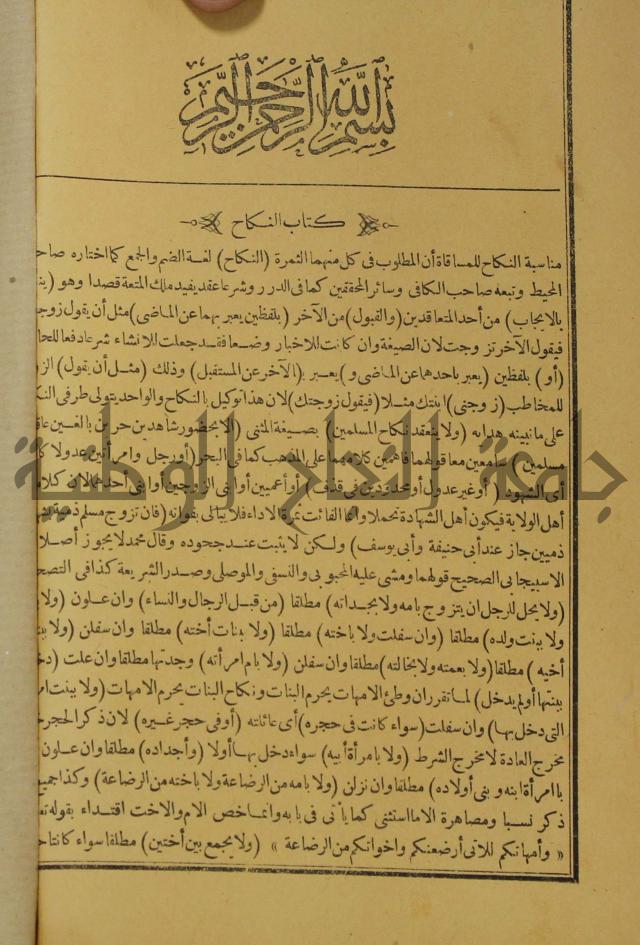 بسم الله الرحمن الرحيم
كتاب النكاح
مناسبة النكاح للمساقاة أن المطلوب فى كل منهما الثمرة (النكاح) لغة الضم والجمع كما اختاره صاحـ
المحيط وتبعه صاحب الكافى وسائر المحققين كما فى الدرر وشرعا عقد يفيد ملك المتعة قصدا وهو (ينـ
بالايجاب) من أحد المتعاقدين (والقبول) من الآخر (بلفظين يعبر بهما عن الماضى) مثل أن يقول زوجـ
فيقول الآخر تزوجت لان الصيغة وان كانت للاخبار وضعا فقد جعلت للانشاء شرعا دفعا للحا
(أو) بلفظين (يعبر باحدهما عن الماضى و) يعبر (بالآخر عن المستقبل) وذلك (مثل أن يقول) الز
للمخاطب (زوجنى) ابنتك مثلا (فيقول زوجتك) لان هذا توكيل بالنكاح والواحد يتولى طرفى النكـ
على ما نبينه هدايه (ولا ينعقد نكاح المسلمين) بصيغة المثنى (الا بحضور شاهدين حرين بالغين عاقـ
مسلمين) سامعين معا قولهما فاهمين كلامهما على المذهب كما فى البحر (أو رجل وامرأتين عدولا كا
أى الشهود (أو غير عدول أو محدودين فى قذف) أو أعميين أو ابنى الزوجين أو ابنى أحدهما لان كلا
أهل الولاية فيكون أهل الشهادة تحملا وانما الفائت ثمرة الاداء فلا يبالى بفواته (فان تزوج مسلم ذمية بشهـ
ذميين جاز عند أبى حنيفة وأبى يوسف) ولكن لا يثبت عند جحوده وقال محمد لا يجوز أصلا
الاسبيجابى الصحيح قولهما ومشى عليه المحبوبى والنسفى والموصلى وصدر الشريعة كذا فى التصحـ
(ولا يحل للرجل ان يتزوج بامه ولا بجداته) مطلقا (من قبل الرجال والنساء) وان علون (ولا
ولا ببنت ولده) مطلقا (وان سفلت ولا باخته) مطلقا (ولا ببنات أخته) مطلقا وان سفلن (ولا ببنـ
أخيه) مطلقا (ولا بعمته ولا بخالته) مطلقا وان سفلن (ولا بام امرأته) وجدتها مطلقا وان علت (دخـ
ببنتها أو لم يدخل) لما تقرر ان وطئ الامهات يحرم البنات ونكاح البنات يحرم الامهات (ولا ببنت امـ
التى دخل بها) وان سفلت (سواء كانت فى حجره) أى عائلته (أو فى حجر غيره) لان ذكر الحجر خـ
مخرج العادة لا مخرج الشرط (ولا بامرأة أبيه) سواء دخل بها أولا (وأجداده) مطلقا وان علون
بامرأة ابنه وبنى أولاده) مطلقا وان نزلن (ولا بامه من الرضاعة ولا باخته من الرضاعة) وكذا جميع
ذكر نسبا ومصاهرة الا ما استثنى كما يأتى فى بابه وانما خص الام والاخت اقتداء بقوله تعـ
« وأمهاتكم اللاتى أرضعنكم واخواتكم من الرضاعة » (ولا يجمع بين أختين) مطلقا سواء كانتا حـ
جامعة النجاح الوطنية